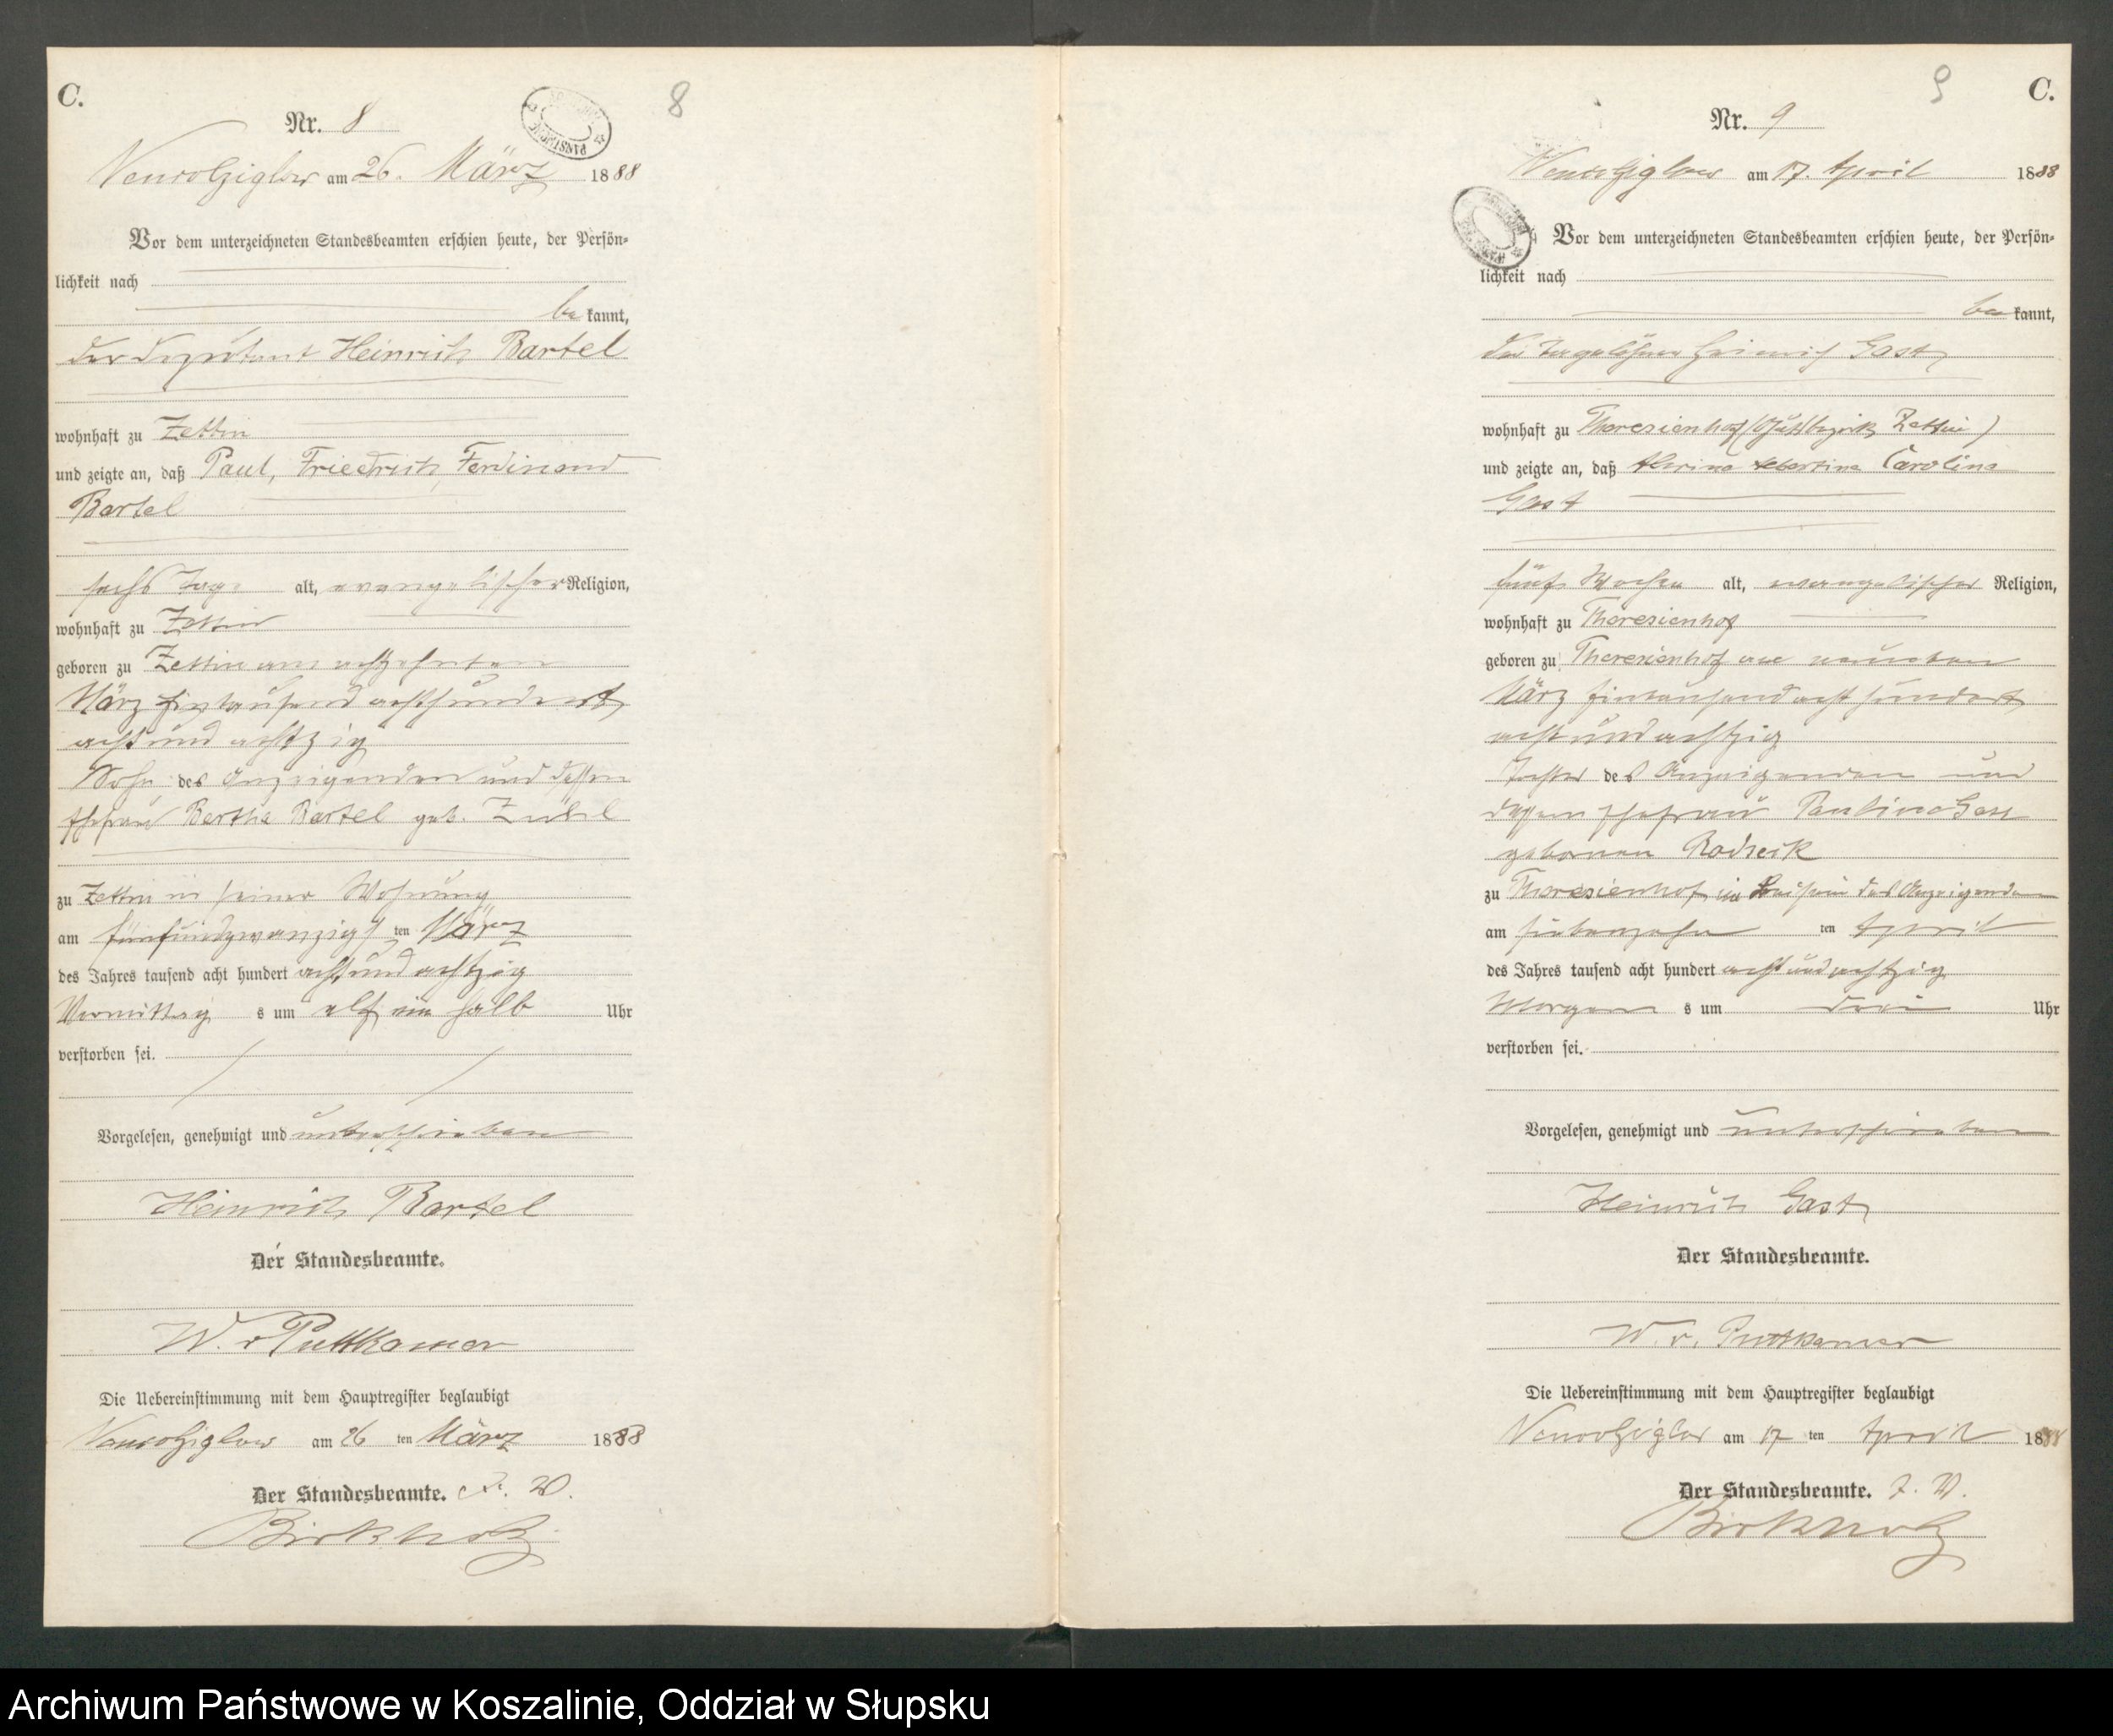 C.
8
Nr. 8
Neuwolziglow am 26. März 1888
Vor dem unterzeichneten Standesbeamten erschien heute, der Persön-
lichkeit nach
be kannt,
der Deputant Heinrich Bartel
wohnhaft zu Zettin
und zeigte an, daß Paul, Friedrich, Ferdinand
Bartel
sechs Tage alt, evangelischer Religion,
wohnhaft zu Zettin
geboren zu Zettin am achtzehnten
März Eintausend achthundert
acht und achtzig
Sohn des Anzeigenden und dessen
Ehefrau Bertha Bartel geb.
zu Zettin in seiner Wohnung
am fünfundzwanzigs ten März
des Jahres tausend acht hundert acht und achtzig
Vormittag s um elf ein halb Uhr
verstorben sei.
Vorgelesen, genehmigt und unterschrieben
Heinrich Bartel
Der Standesbeamte.
W. v Puttkamer
Die Uebereinstimmung mit dem Hauptregister beglaubigt
Neuwolziglow am 26 ten März 1888
Der Standesbeamte. J. V.
Birkholz
9
C.
Nr. 9
Neuwolziglow am 17. April 1888
Vor dem unterzeichneten Standesbeamten erschien heute, der Persön-
lichkeit nach
be kannt,
der Tagelöhner Heinrich Gast
wohnhaft zu Theresienhof (Gutsbezirk Zettin)
und zeigte an, daß Albertine Caroline
Gast
fünf Wochen alt, evangelischer Religion,
wohnhaft zu Theresienhof
geboren zu Theresienhof am neunten
März Eintausend acht hundert
acht und achtzig
Tochter des Anzeigenden und
dessen Ehefrau Pauline Gast
gebornen
zu Theresienhof im Beisein des Anzeigenden
am siebenzehn ten April
des Jahres tausend acht hundert acht und achtzig
Morgen s um drei Uhr
verstorben sei.
Vorgelesen, genehmigt und unterschrieben
Heinrich Gast
Der Standesbeamte.
W. v. Puttkamer
Die Uebereinstimmung mit dem Hauptregister beglaubigt
Neuwolziglow am 17 ten April 1888
Der Standesbeamte. J. V.
Birkholz
Archiwum Państwowe w Koszalinie, Oddział w Słupsku